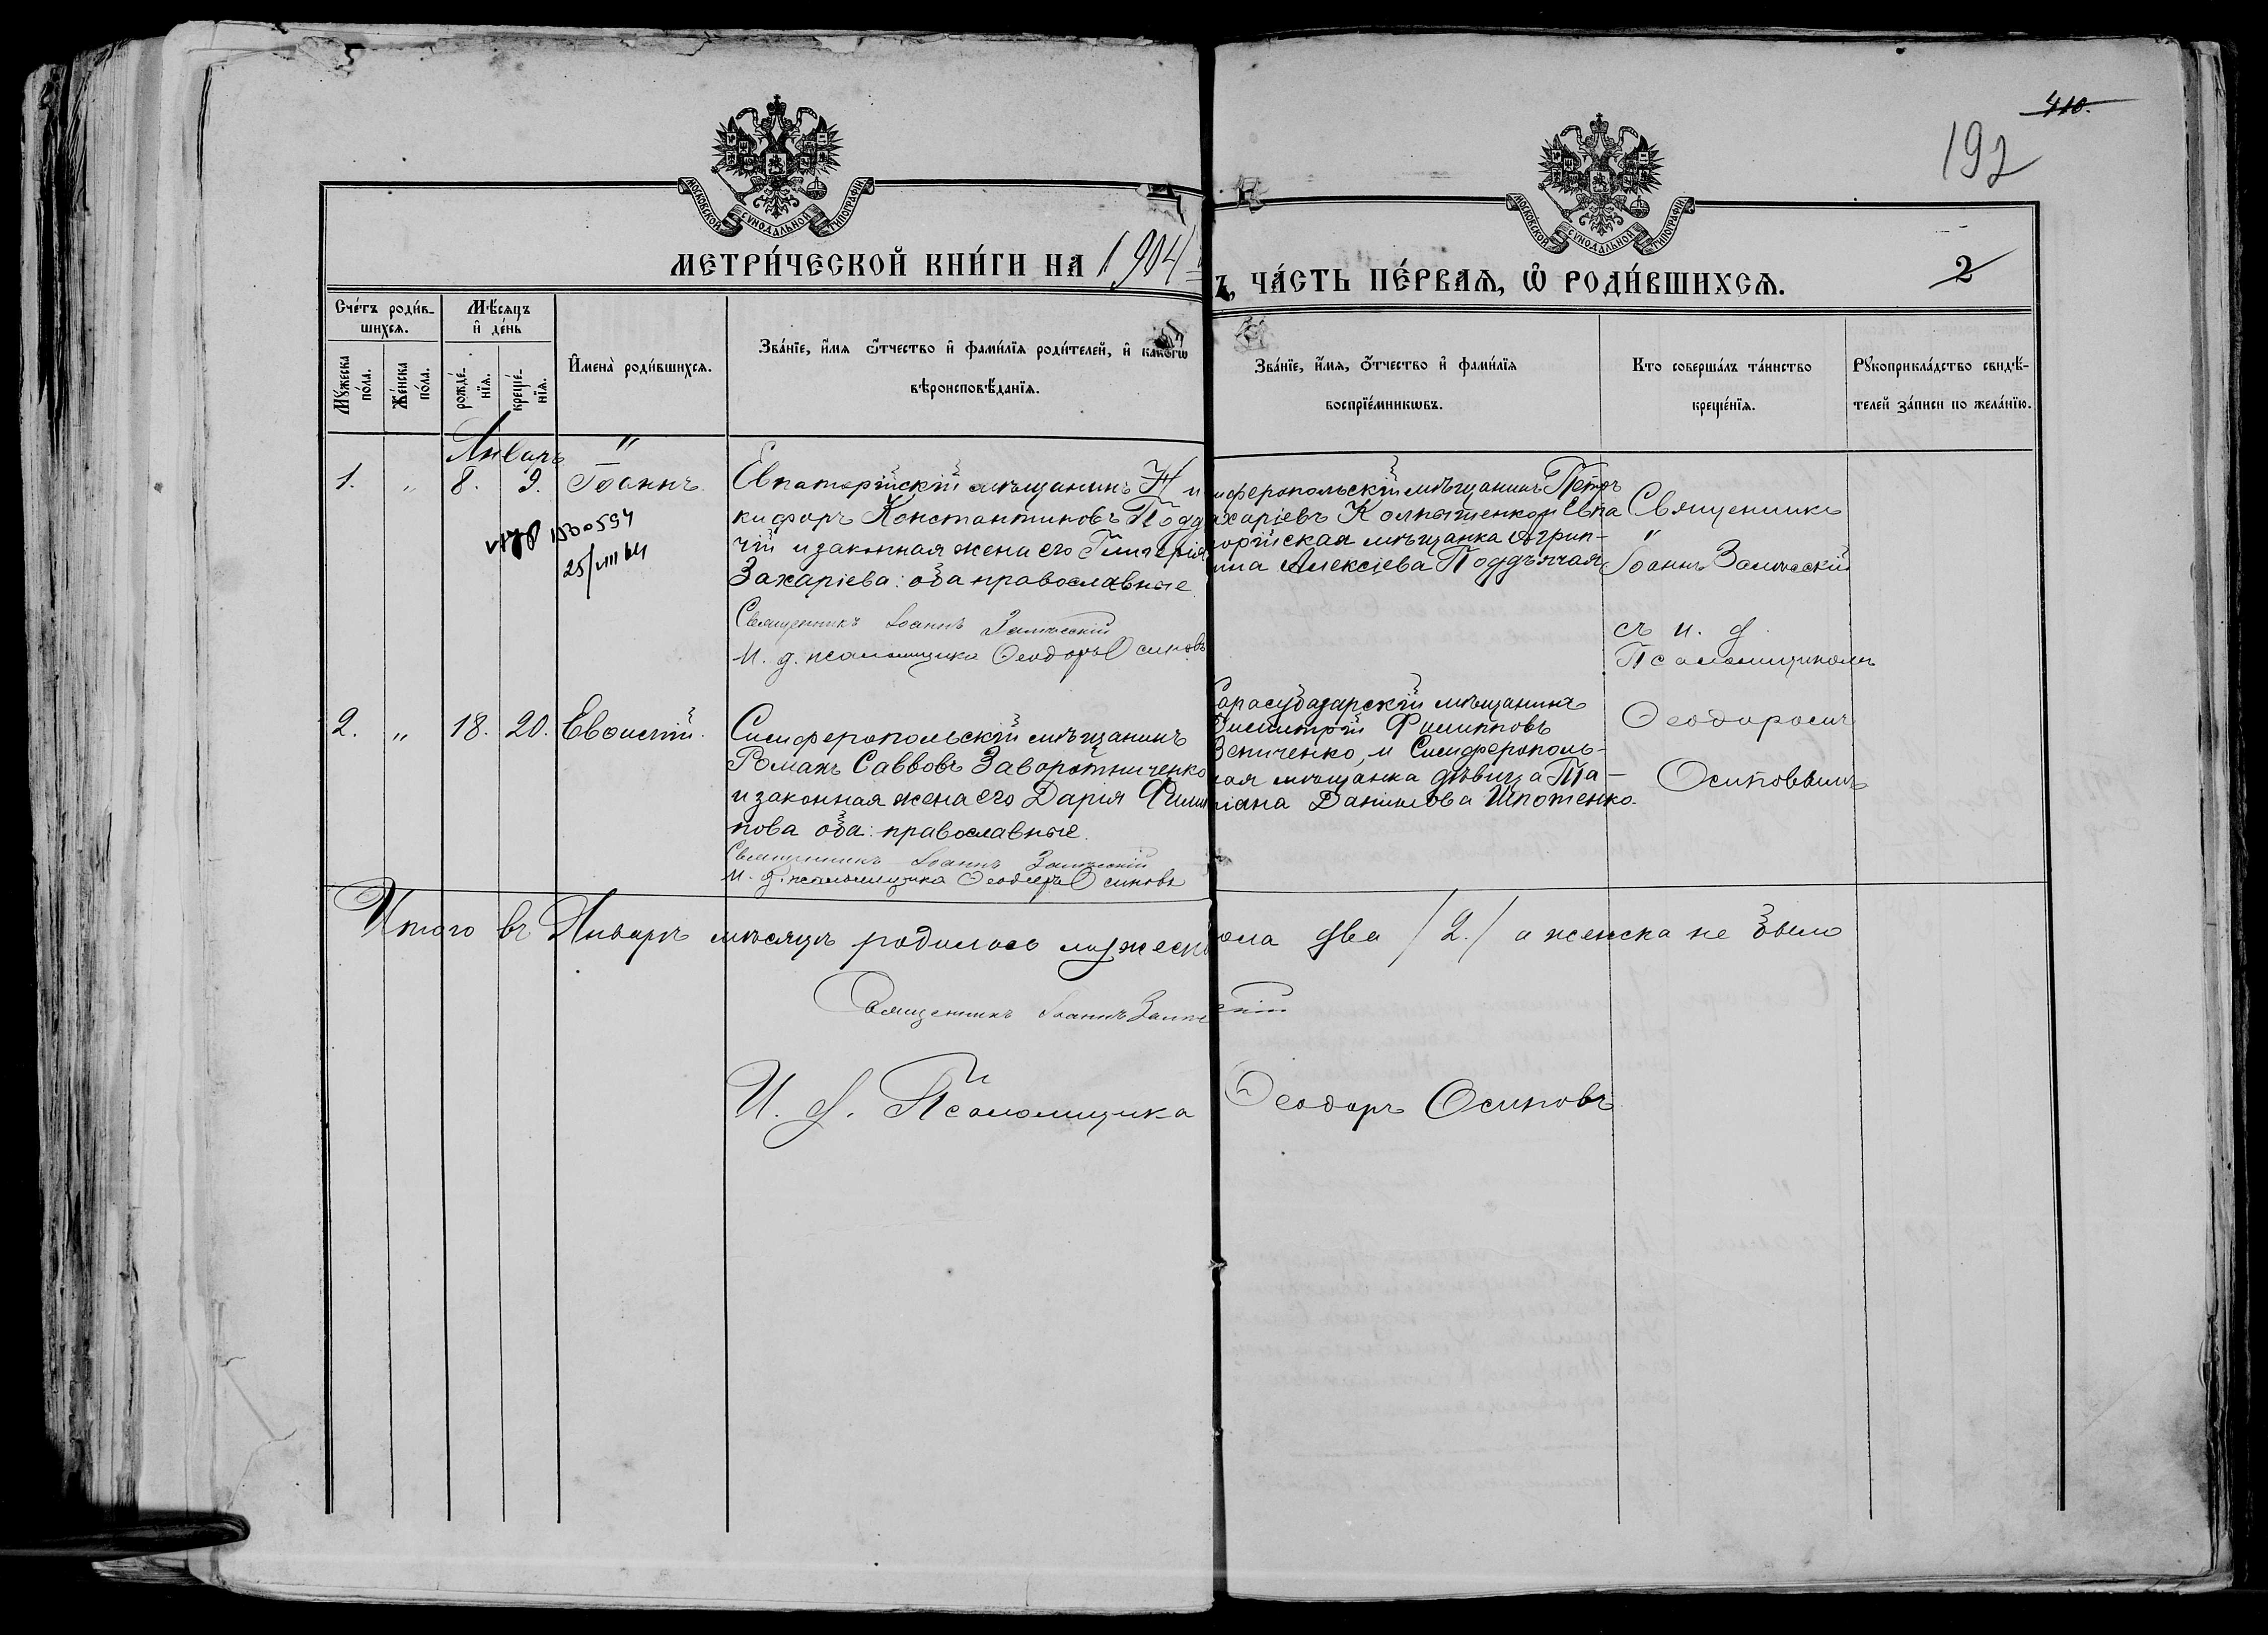 410.
192
МОСКОВСКОЙ СѴНОДАЛЬНОЙ ТИПОГРАФІИ
МОСКОВСКОЙ СѴНОДАЛЬНОЙ ТИПОГРАФІИ
МЕТРИ́ЧЕСКОЙ КНИ́ГИ НА 1904
Ъ, ЧА́СТЬ ПЕ́РВАѦ, Ѡ҆ РОДИ́ВШИХСѦ.
2
Сче́тъ роди́в-
шихсѧ.
Мꙋ́жеска
по́ла.
Же́нска
по́ла.
Мѣ́сѧцъ
и҆ де́нь
рожде́-
нїѧ.
креще́-
нїѧ.
И҆мена̀ роди́вшихсѧ.
Зва́нїе, и҆́мѧ ѻ҆́тчество и҆ фами́лїѧ роди́телей, и҆ како́гѡ
вѣроисповѣ́данїѧ.
Зва́нїе, и҆́мѧ, ѻ҆́тчество и҆ фами́лїѧ
воспрїе́мникѡвъ.
Кто соверша́лъ та́инство
креще́нїѧ.
Рꙋкоприкла́дство свидѣ́-
телей за́писи по жела́нїю.
Январь
1. „ 8. 9. Іоаннъ
Евпаторійскій мѣщанинъ Ни
кифоръ Константиновъ Подд
чій и законная жена его Гликерія
Захаріева: оба православные
Священникъ Іоаннъ Замѣсскій
И. д. псаломщика Ѳеодоръ Осиповъ
25/VIII 64
имферопольскій мѣщанинъ Петръ
ахаріевъ Колпатенко и Евпа
орійская мѣщанка Агрип-
ина Алексіева Поддъячая
Священникъ
Іоаннъ Замѣсскій
съ и. д.
Псаломщикомъ
Ѳеодоромъ
Осиповымъ
2. „ 18. 20. Евѳимій.
Симферопольскій мѣщанинъ
Романъ Саввовъ Заворотниченко
и законная жена его Дарія Филип
пова оба: православные.
Священникъ Іоаннъ Замѣсскій
И. д. псаломщика Ѳеодоръ Осиповъ
арасубазарскій мѣщанинъ
Димитрій Филипповъ
Зениченко, и Симферополь-
кая мѣщанка дѣвица Та-
тіана Данилова Шпотенко.
Итого въ Январѣ мѣсяцѣ родилось мужеск
ола два /2./ а женска не было
Священникъ Іоаннъ Замѣсскій
И. д. Псаломщика Ѳеодоръ Осиповъ